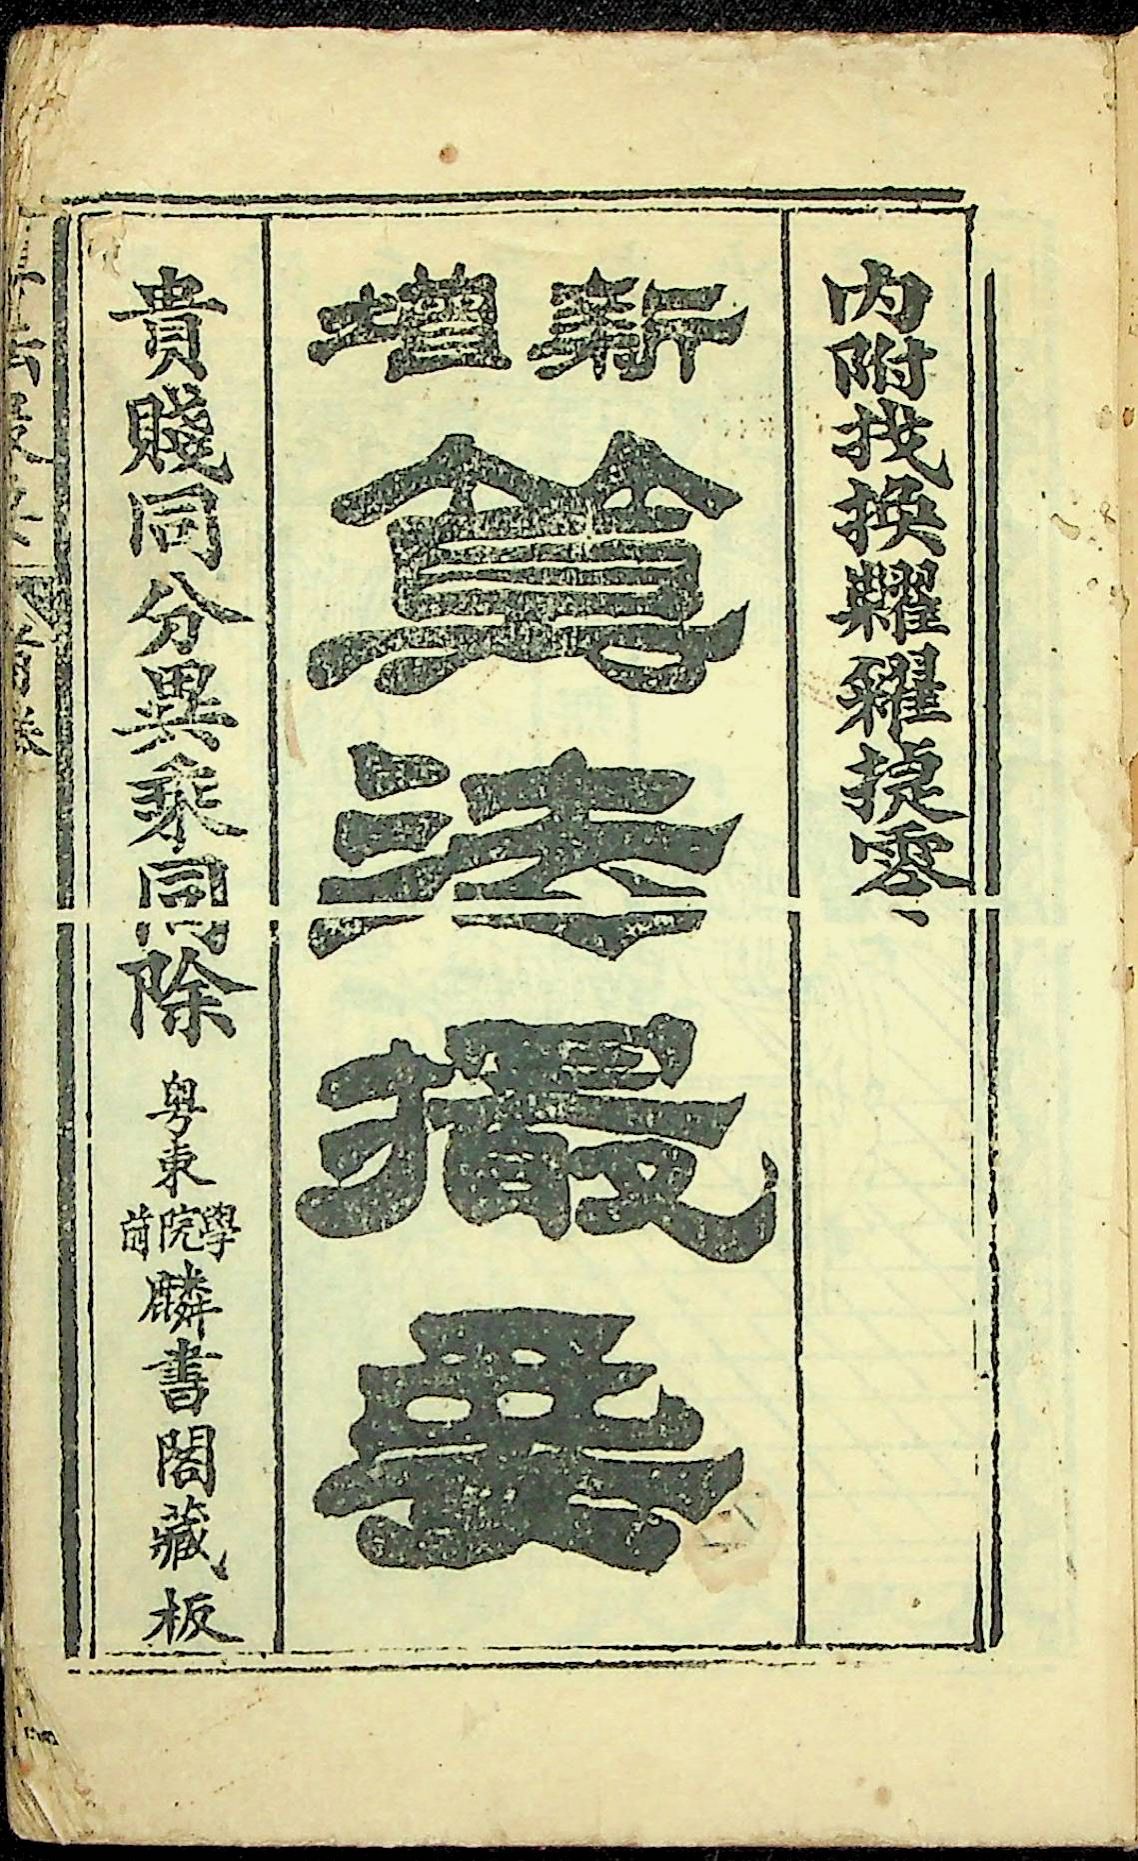 內附找換糶糴捷零
新增
算法撮要
貴賤同分異乘同除
粵東
學院前
麟書閣藏板